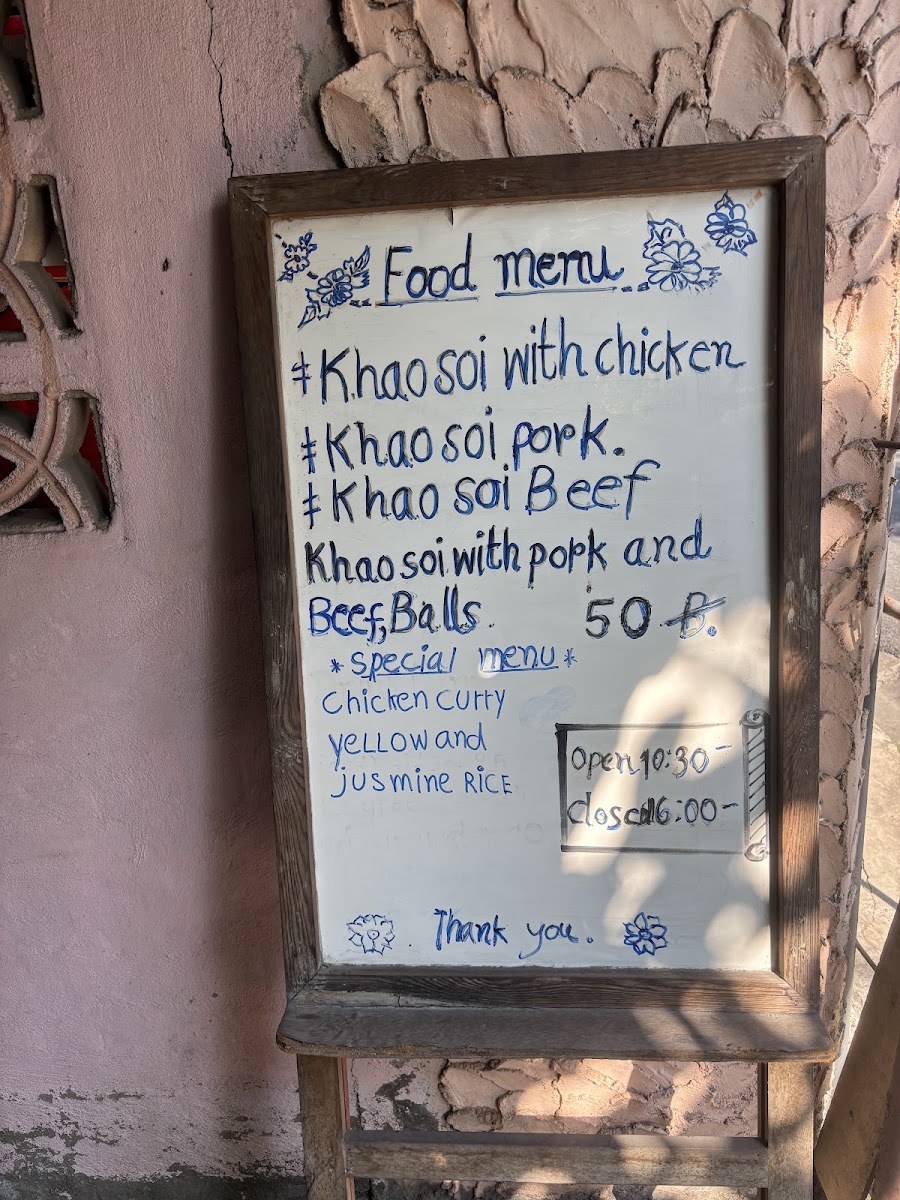 Food menu
‡ Khao soi with chicken
‡ Khao soi pork.
‡ Khao soi Beef
Khao soi with pork and
Beef, Balls. 50 B.
* special menu *
chicken curry
yellow and
jusmine RICE
open 10:30-
closed 16:00-
Thank you.